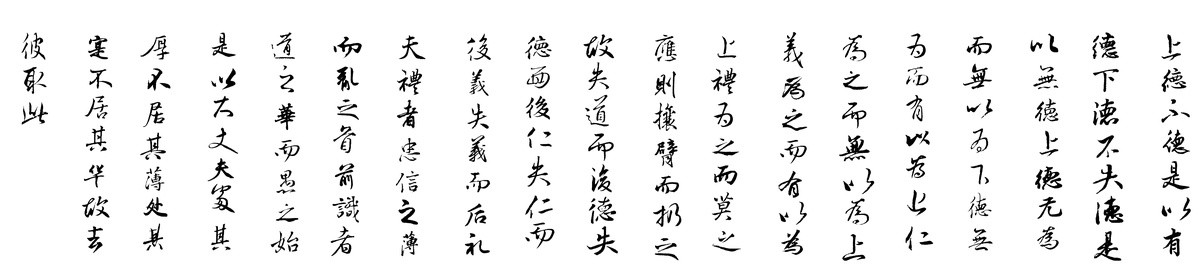 上德不德是以有
德下德不失德是
以無德上德无為
而無以为下德無
为而有以為上仁
為之而無以為上
義為之而有以為
上禮为之而莫之
應則攘臂而扔之
故失道而後德失
德而後仁失仁而
後義失義而后礼
夫禮者忠信之薄
而亂之首前識者
道之華而愚之始
是以大丈夫處其
厚不居其薄处其
寔不居其华故去
彼取此